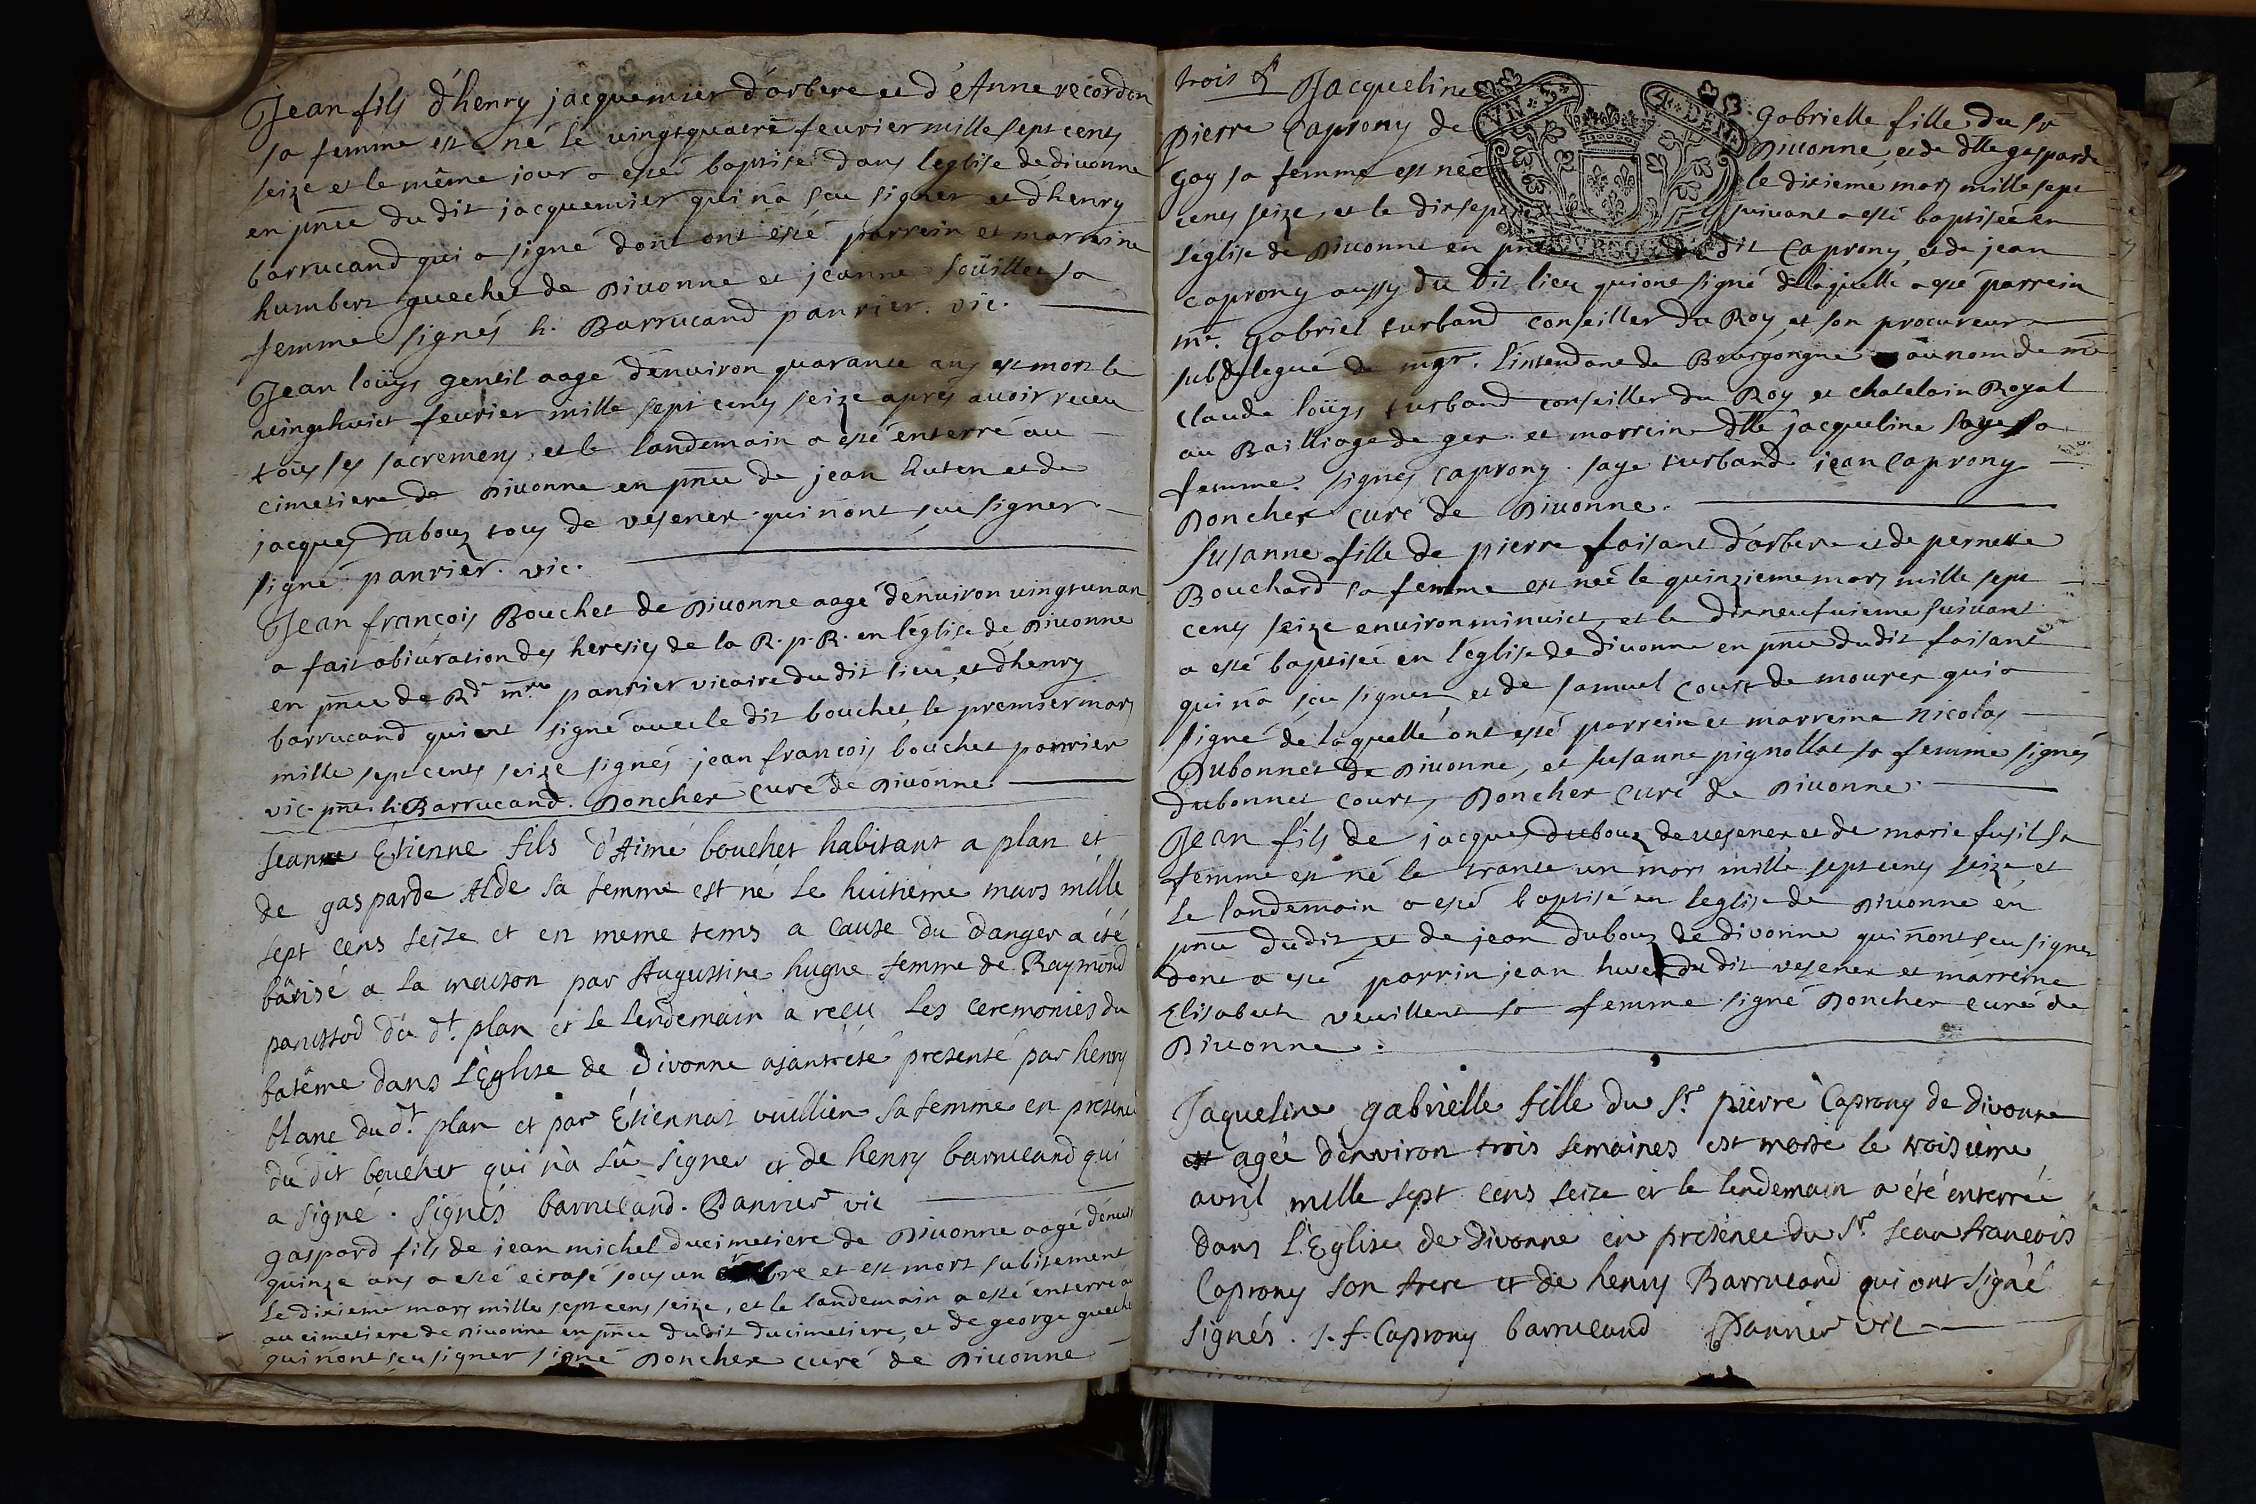 Jean fils d'henry jacquemier d'arbere et d'Anne recordon
sa femme est né le vingtquatre feurier mille sept cents
seize et le même jour a esté baptisé dans leglise de diuonne
en pñce du dit jacquemier qui na sceu signer et d'henry
barrucand qui a signé dont ont esté parrein et marreine
humbert guechet de Diuonne et jeanne soüillet sa
femme signés h. Barrucand panrier. vic.
Jean loüys gentil aagé denuiron quarante ans est mort le
vingthuict feurier mille sept cents seize aprés auoir receu
tous ses sacremens, et le landemain a esté enterré au
cimetiere de Diuonne en pñce de jean huten et de
jacques dubouz tous de vesenex qui nont sceu signer.
signé panrier. vic.
Jean françois Bouchet de Diuonne aagé denuiron vingtun an
a fait abiuration des heresies de la R. p. R. en l'eglise de Diuonne
en pñce de Rd. mre panrier vicaire du dit lieu, et d'henry
barrucand qui ont signé auec le dit bouchet, le premier mars
mille sept cents seize signés jean françois bouchet panrier
vic. pnt. h. Barrucand. Doncher curé de Diuonne
Jean Etienne fils d'Aimé bouchet habitant a plan et
de gasparde Alde sa femme est né le huitieme mars mille
sept cens seize et en meme tems a cause du danger a été
bâtisé a la maison par Augustine hugue femme de Raymond
panissod du dt. plan et le lendemain a reçu les ceremonies du
batême dans l'Eglise de Divonne aiant eté presenté par henry
blanc du dt. plan et par Etiennaz vuillien sa femme en presence
du dit bouchet qui n'a sû signer et de henry barrucand qui
a signé. signés barrucand. Panrier vic
gaspard fils de jean michel ducimetiere de Diuonne aagé denuiron
quinze ans a esté ecrasé sous un arbre et est mort subitement
le dixieme mars mille sept cens seize, et le landemain a esté enterré
au cimetiere de Diuonne en pñce du dit ducimetiere, et de george guechet
qui nont sceu signer signé Doncher curé de Diuonne
trois Jacqueline Gabrielle fille du sr
UN S. 4. DEN.
pierre Caprony de Diuonne, et de dlle gasparde
Gay sa femme est née le dixieme mars mille sept
cens seize, et le dixsept suivant a esté baptisée en
BOVRGOG
l'eglise de Diuonne en pñce du dit Caprony, et de jean
caprony aussy du dit lieu qui ont signé de laquelle a esté parrein
mre. Gabriel turband conseiller du Roy et son procureur
subdelegué de mgr. l'intendant de Bourgongne au nom de me
claude loüys turband conseiller du Roy et chatelain Royal
au Bailliage de gex. et marreine dlle jacqueline saye sa
femme. signés Caprony. saye turband jean Caprony
Doncher curé de Diuonne.
Susanne fille de pierre faisant d'arbere et de pernette
Bouchard sa femme est née le quinzieme mars mille sept
cens seize enuiron minuict, et le dixneufuieme suiuant
a esté baptisée en l'eglise de diuonne en pñce du dit faisant
qui na sceu signer, et de samuel Court de mourex qui a
signé de laquelle ont esté parrein et marreine Nicolas
Dubonnet de Diuonne, et susanne pignollat sa femme signés
dubonnet Court, Doncher curé de Diuonne.
Jean fils de jacques dubouz de vesenex et de marie fusil sa
femme est né le trante un mars mille sept cens seize et
le landemain a esté baptisé en leglise de Diuonne en
pñce du dit et de jean dubouz de divonne qui nont sceu signer
dont a esté parrin jean huten du dit vesenex et marreine
Elisabeth veuillent sa femme signé Doncher curé de
Diuonne.
Jaqueline gabrielle fille du Sr. pierre Caprony de divonne
agée d'environ trois semaines est morte le troisieme
avril mille sept cens seize et le lendemain a été enterrée
dans l'Eglise de Divonne en presence du Sr. jean françois
Caprony son frere et de henry Barrucand qui ont signé
signés. j. f. Caprony barrucand Panrier vic